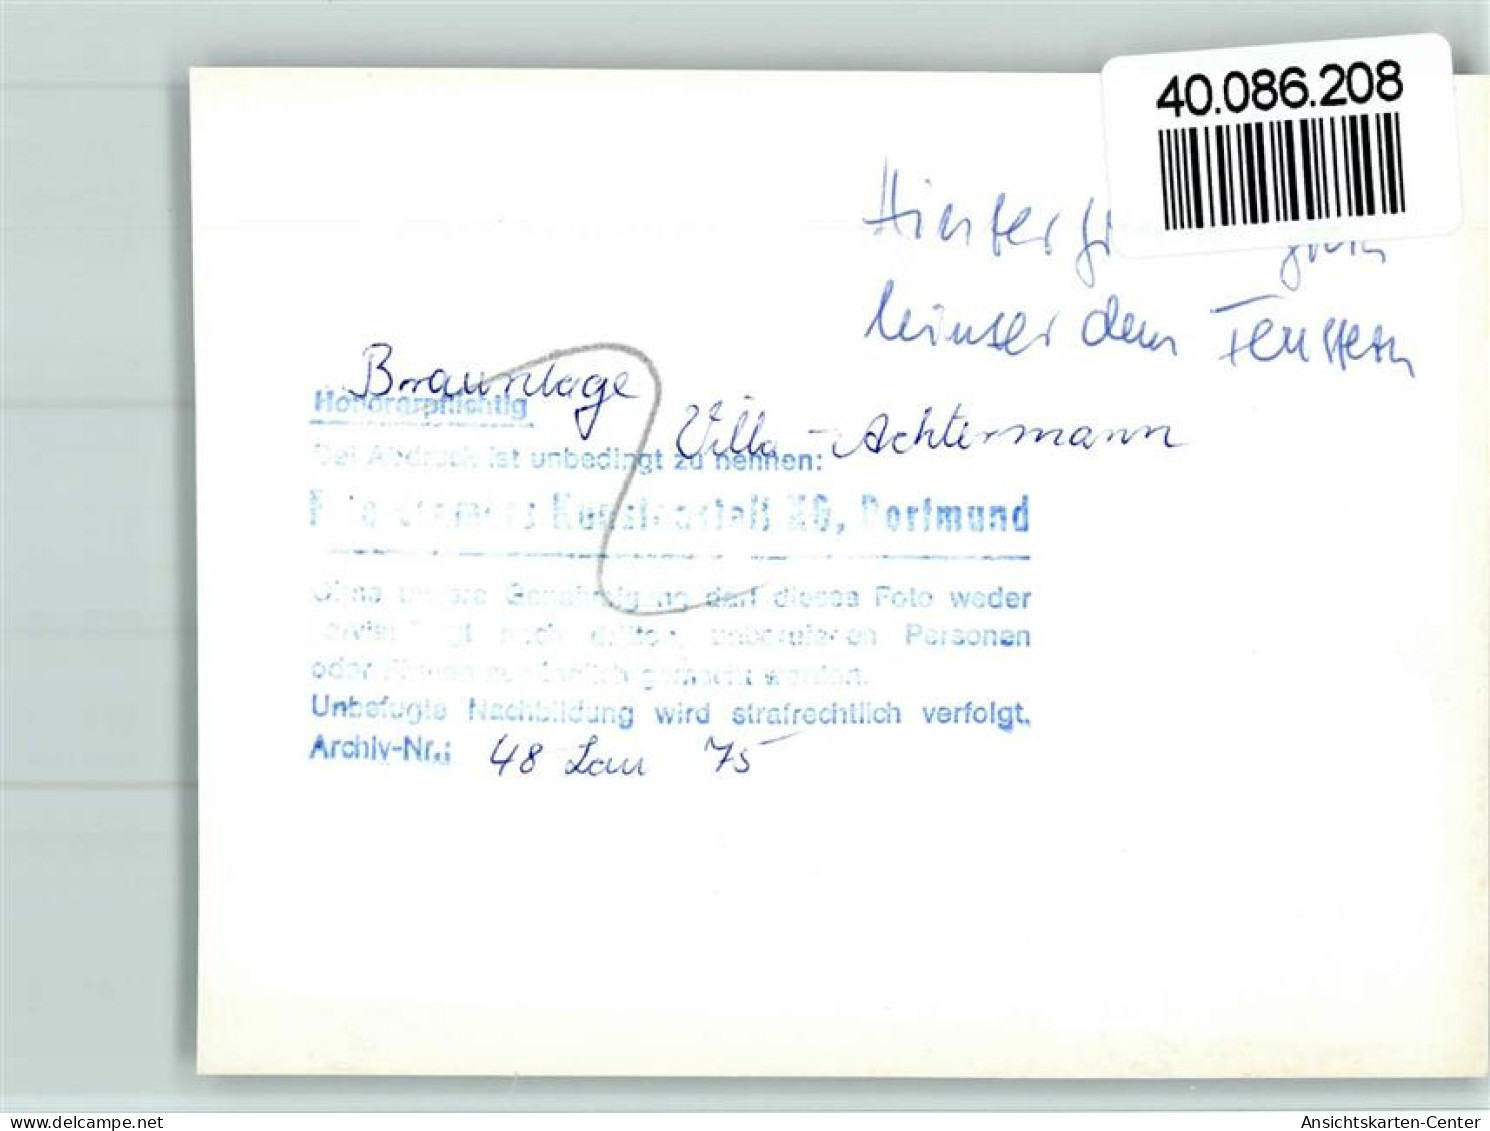 40.086.208
Hintergr
hinter dem Fenstern
Braunlage
Honorarpflichtig
Villa - Achtermann
Bei Abdruck ist unbedingt zu nennen:
Kunstanstalt KG, Dortmund
Ohne unsere Genehmigung darf dieses Foto weder
noch dritten, unberufenen Personen
oder Firmen zugänglich gemacht werden.
Unbefugte Nachbildung wird strafrechtlich verfolgt.
Archiv-Nr.: 48 Lau 75
delcampe.net
Ansichtskarten-Center